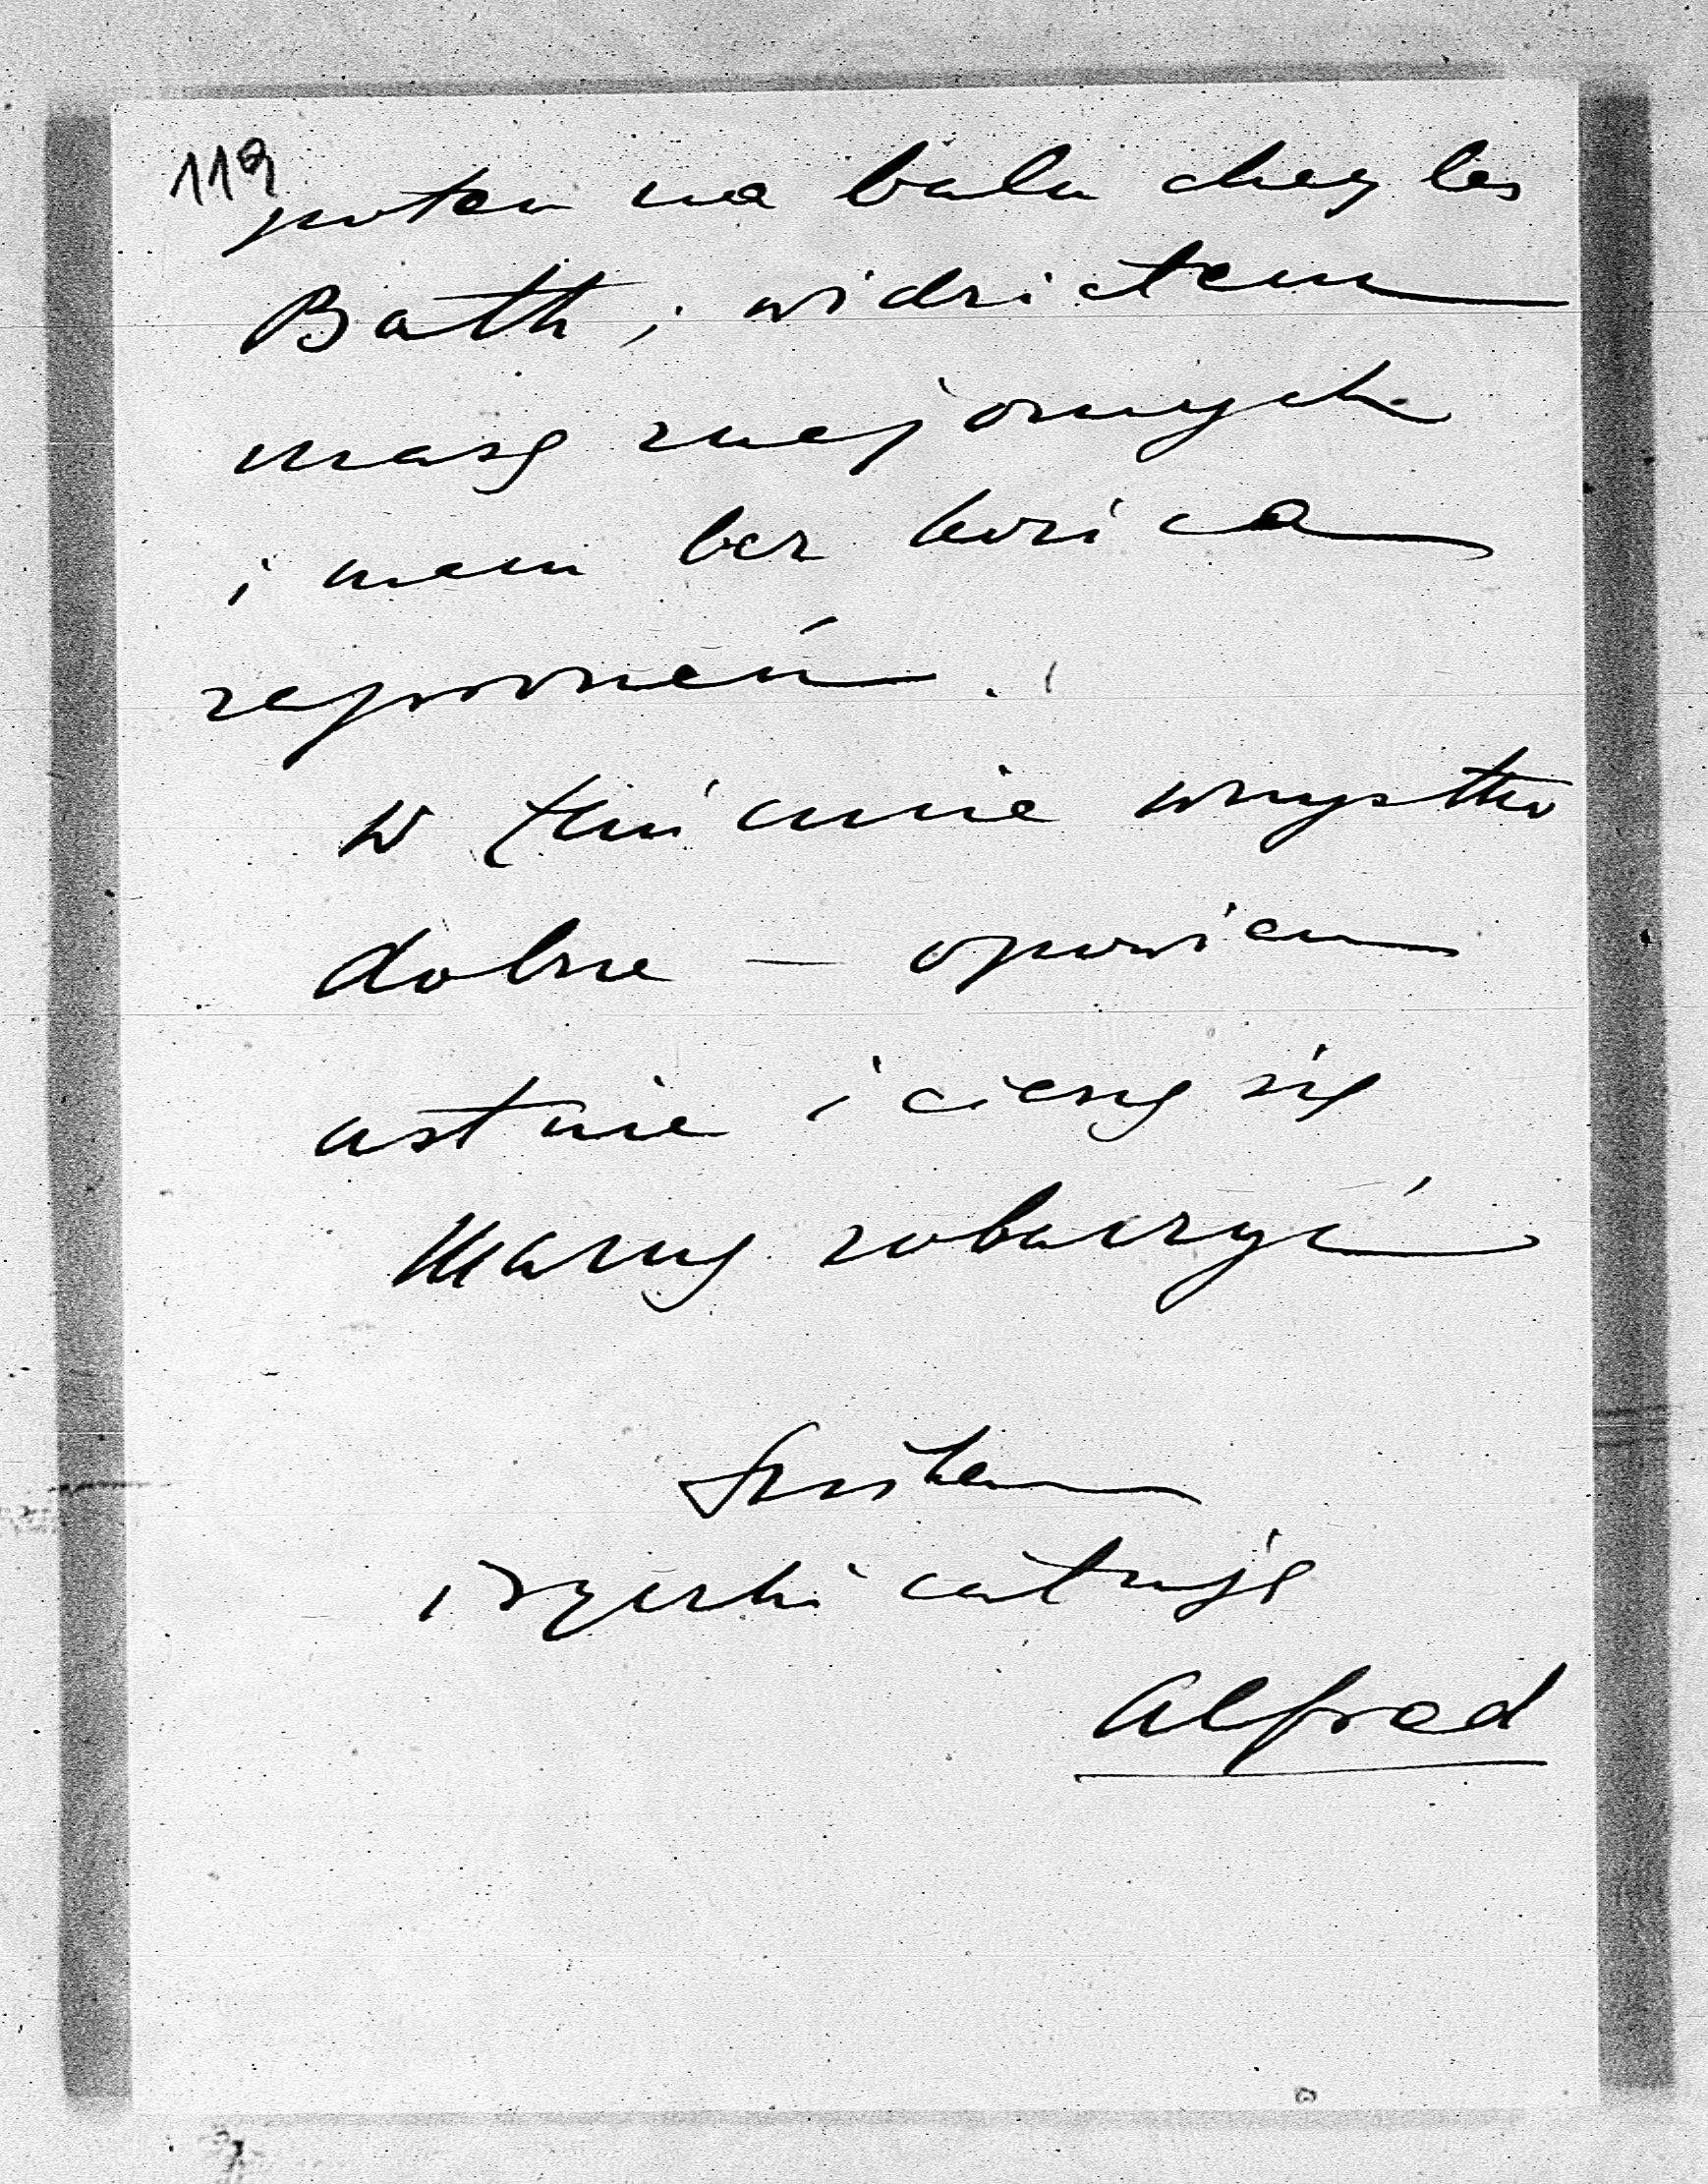 119
potem na balu chez les
Bath; widziałem
masę znajomych
i mam bez końca
zaproszeń.
w Łańcucie wszystko
dobrze — opowiem
ustnie i cieszę się
Mamę zobaczyć
i rączki całuję
Alfred